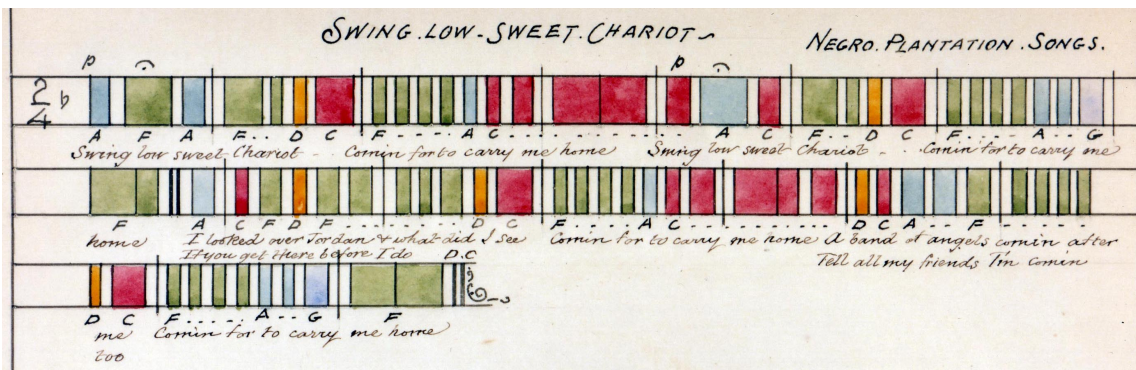 SWING.LOW-SWEET.CHARIOT~ NEGRO.PLANTATION.SONGS.
p p
2 b
4
A F A F.. D C F.....A C............ A C F.. D C F.....A..G
Swing low sweet Chariot -.. Comin for to carry me home Swing low sweet chariot -...Comin for to carry me
F A C F D F............ D C F.....A C............ D C A.. F........
home I looked over Jordan & what did I see Comin for to carry me home A band of angels comin after
If you get there before I do D.C Tell all my friends I'm comin
D C F.....A..G F
me Comin for to carry me home
too